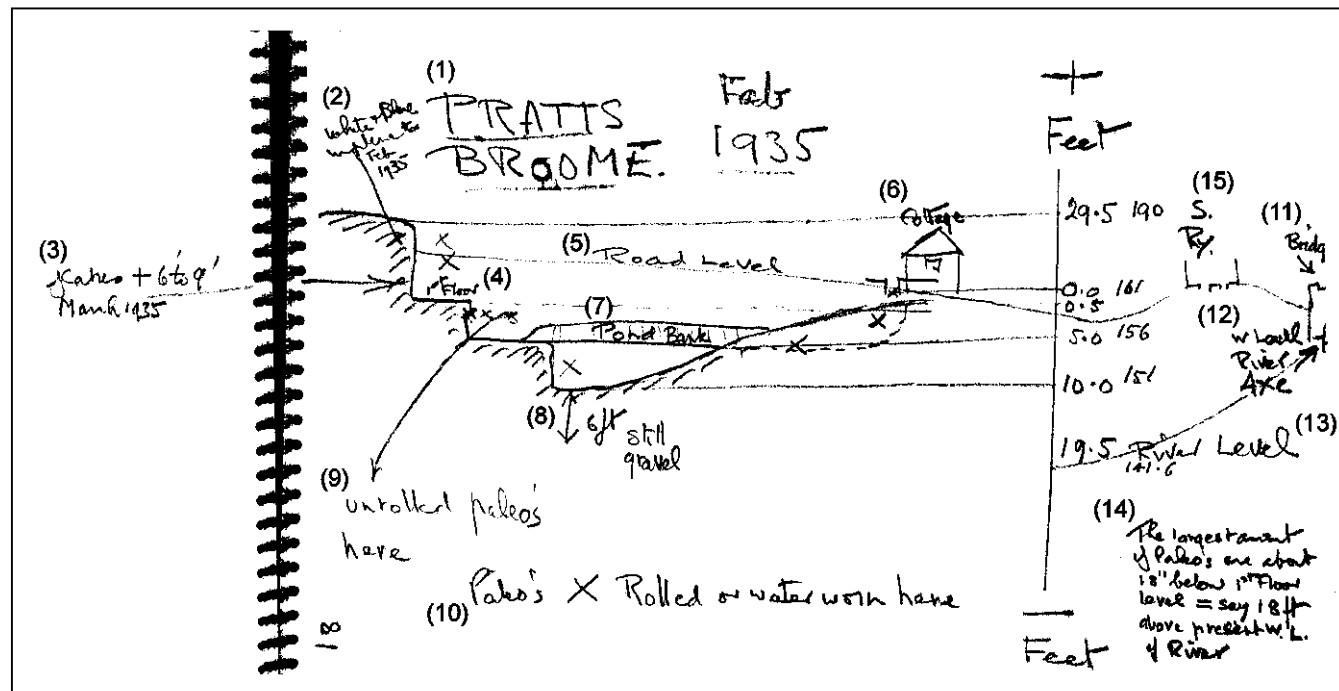 (1)
PRATTS
BROOME.
Feb
1935
+
Feet
(2)
White + Blue
implements
Feb
1935
(3)
+ 6' to 9'
March 1935
(4)
1st Floor
(5) Road Level
(6)
Cottage
(7)
Pond Bank
(8)
6ft
still
gravel
(9)
unrolled paleo's
here
(10) Paleo's X Rolled or water worn here
29.5 190
0.0 161
0.5
5.0 156
10.0 151
19.5 River Level
141.6
(15)
S.
Ry.
(11)
Bridg
(12)
W Level
River
AXE
(13)
(14)
The largest amount
of Paleo's are about
18" below 1st Floor
level = say 18 ft
above present W.L.
of River
—
Feet